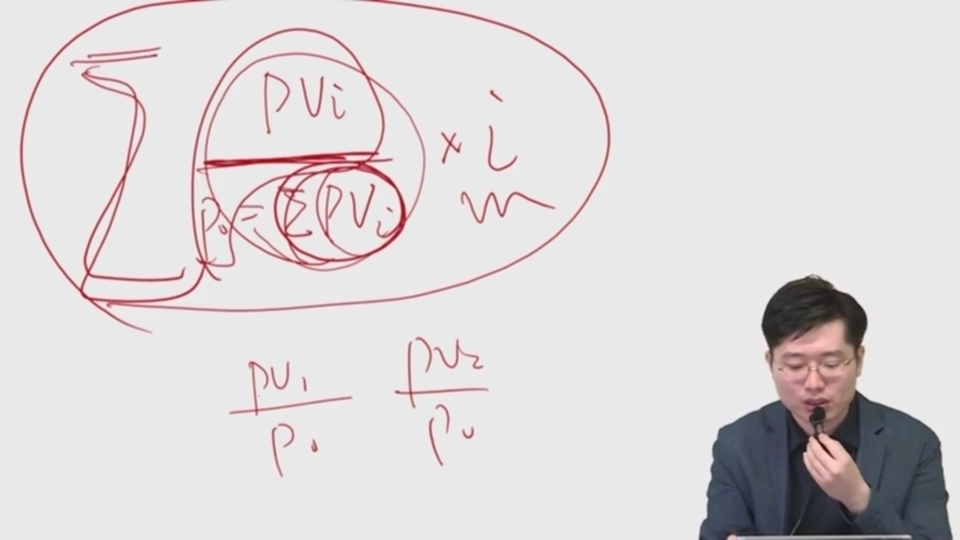 Σ PVi / P₀ = ΣPVi × i
m
PV₁ / P₀ PV₂ / P₀